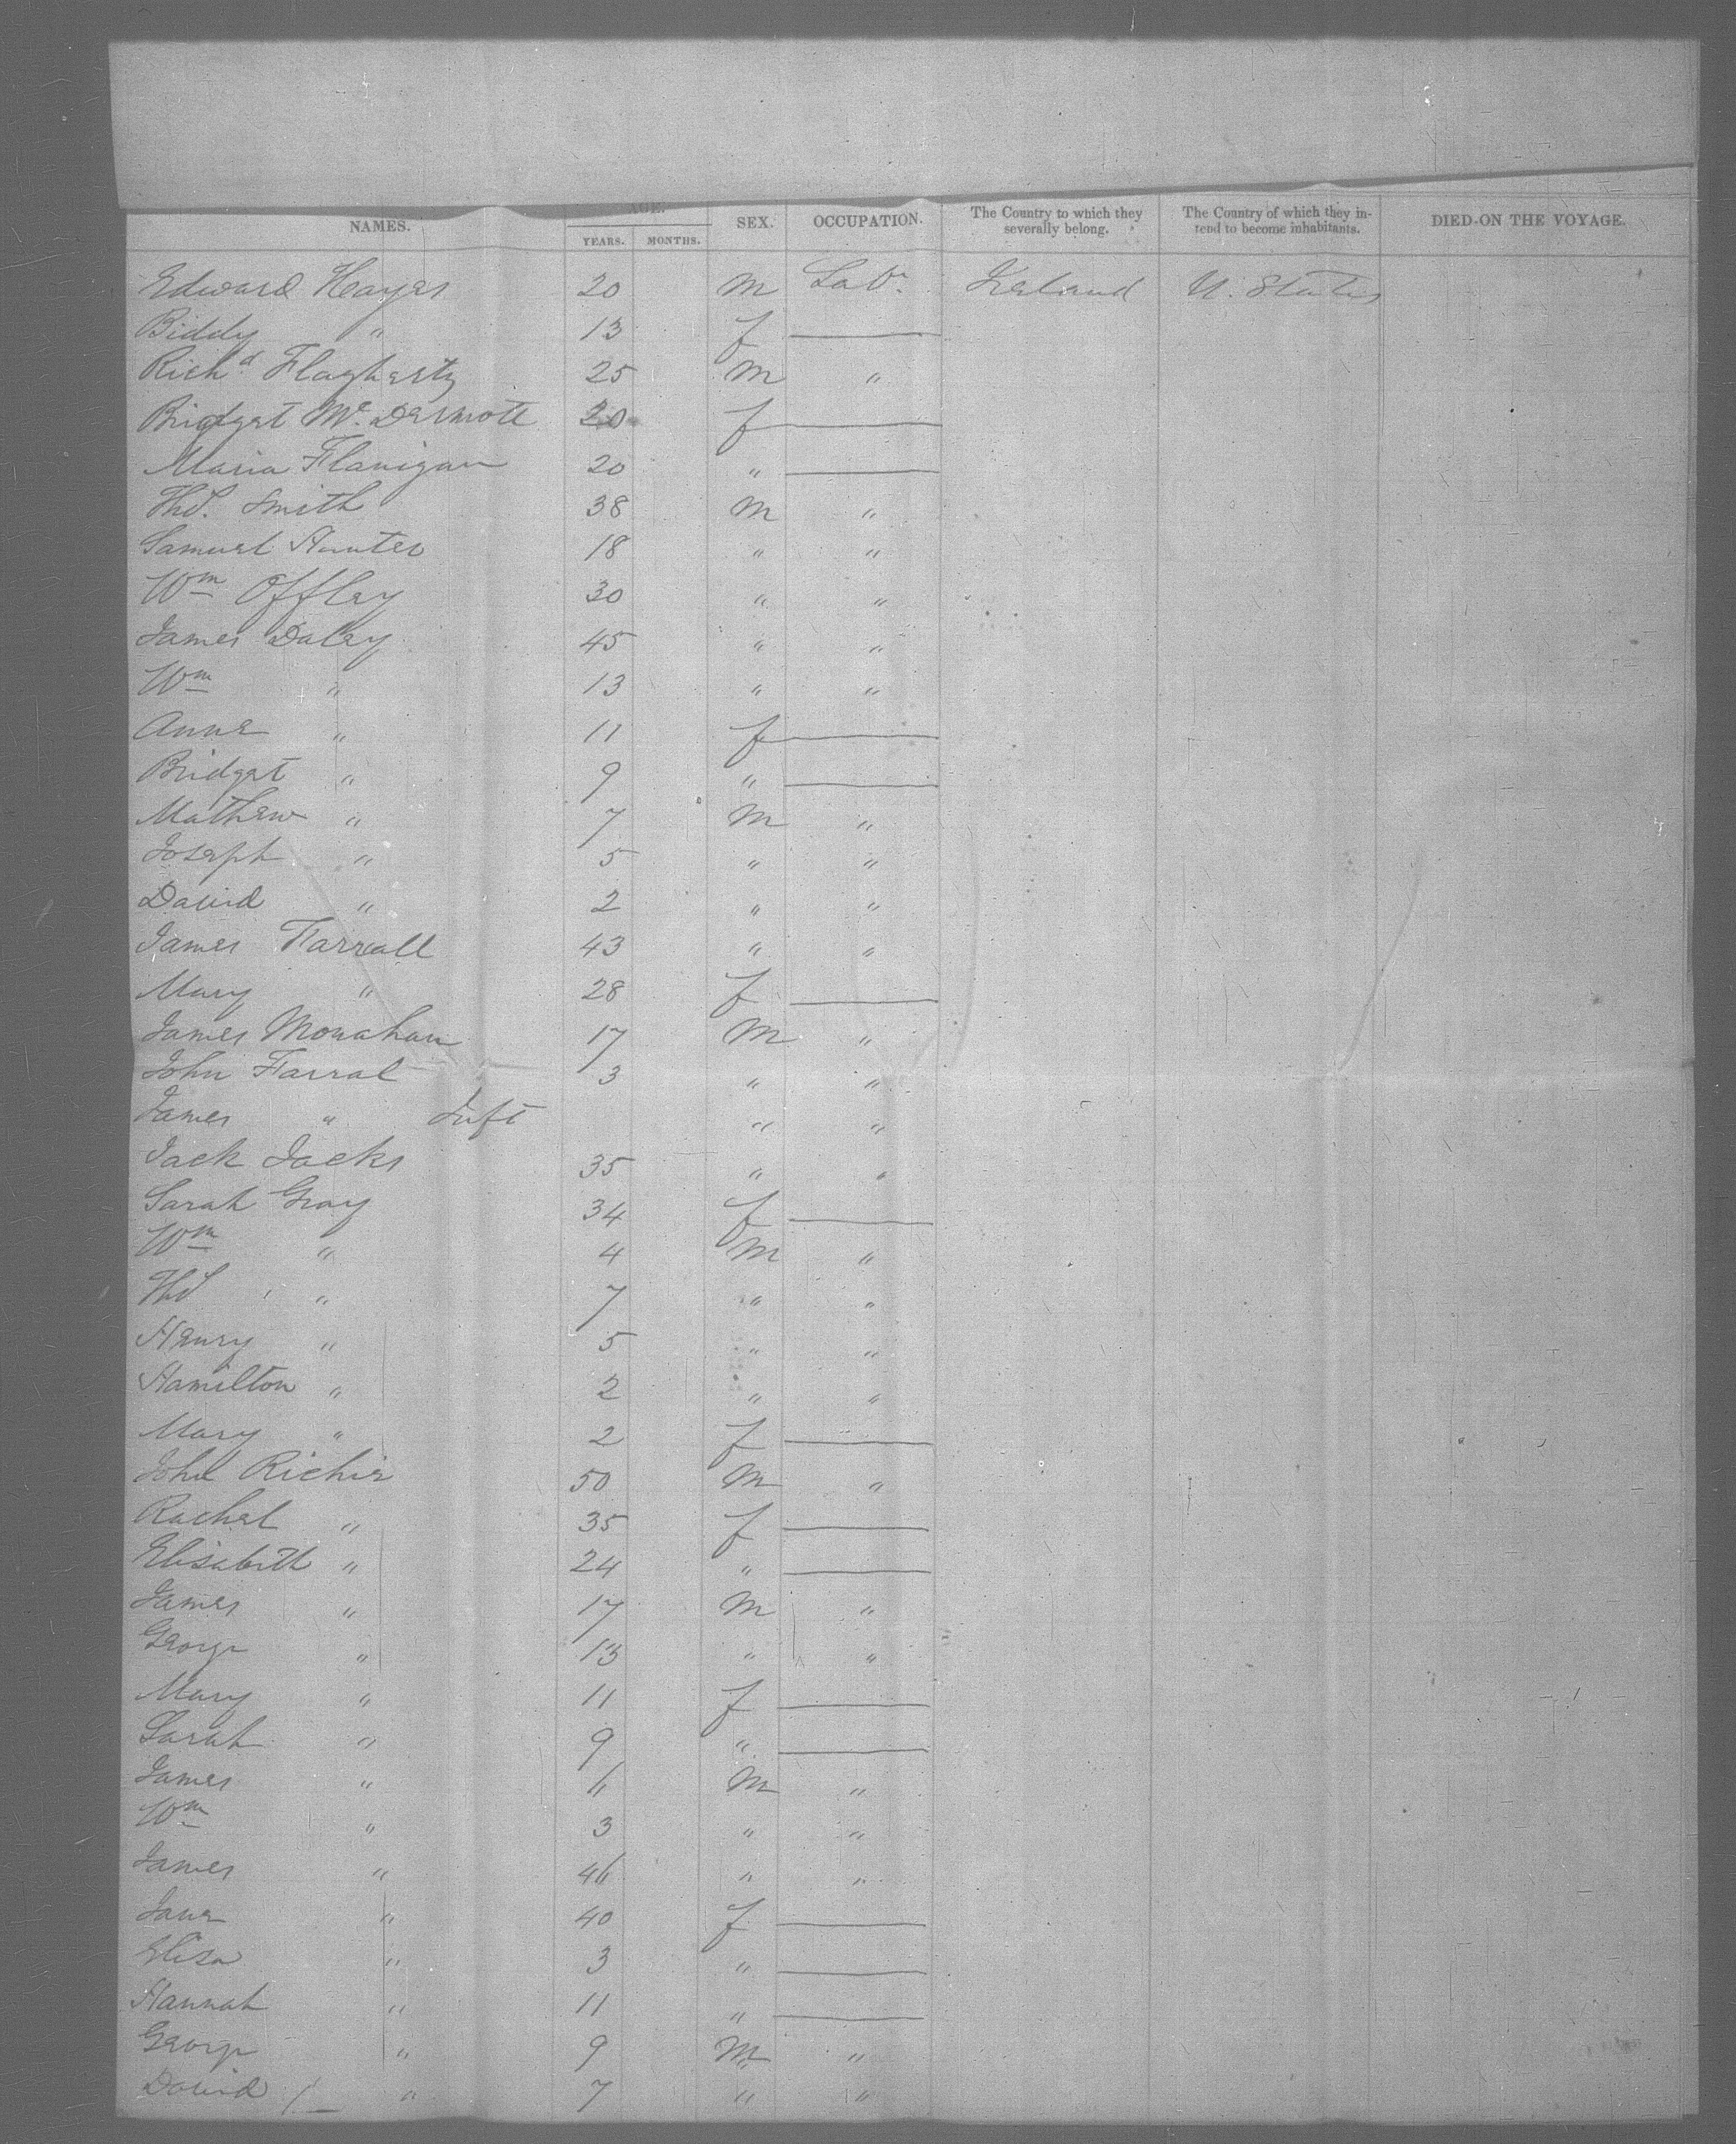 NAMES. AGE. SEX. OCCUPATION. The Country to which they severally belong. The Country of which they intend to become inhabitants. DIED ON THE VOYAGE.
YEARS. MONTHS.
Edward Hayes 20 m Labr. Ireland U. States
Biddy " 13 f —
Richd. Flagherty 25 m "
Bridget Mc. Dermott 20 f —
Maria Flanigan 20 " —
Thos. Smith 38 m "
Samuel Hunter 18 " "
Wm Offley 30 " "
James Daley 45 " "
Wm " 13 " "
Anne " 11 f —
Bridget " 9 " —
Mathew " 7 m "
Joseph " 5 " "
David " 2 " "
James Farrall 43 " "
Mary " 28 f —
James Monahan 17 m "
John Farral 3 " "
James " Inft " "
Jack Jacks 35 " "
Sarah Gray 34 f —
Wm " 4 m "
Thos " 7 " "
Henry " 5 " "
Hamilton " 2 " "
Mary " 2 f —
John Richie 50 m "
Rachel " 35 f —
Elisabeth " 24 " —
James " 17 m "
George " 13 " "
Mary " 11 f —
Sarah " 9 " —
James " 6 m "
Wm " 3 " "
James " 46 " "
Jane " 40 f —
Eliza " 3 " —
Hannah " 11 " —
George " 9 m "
David " 7 " "